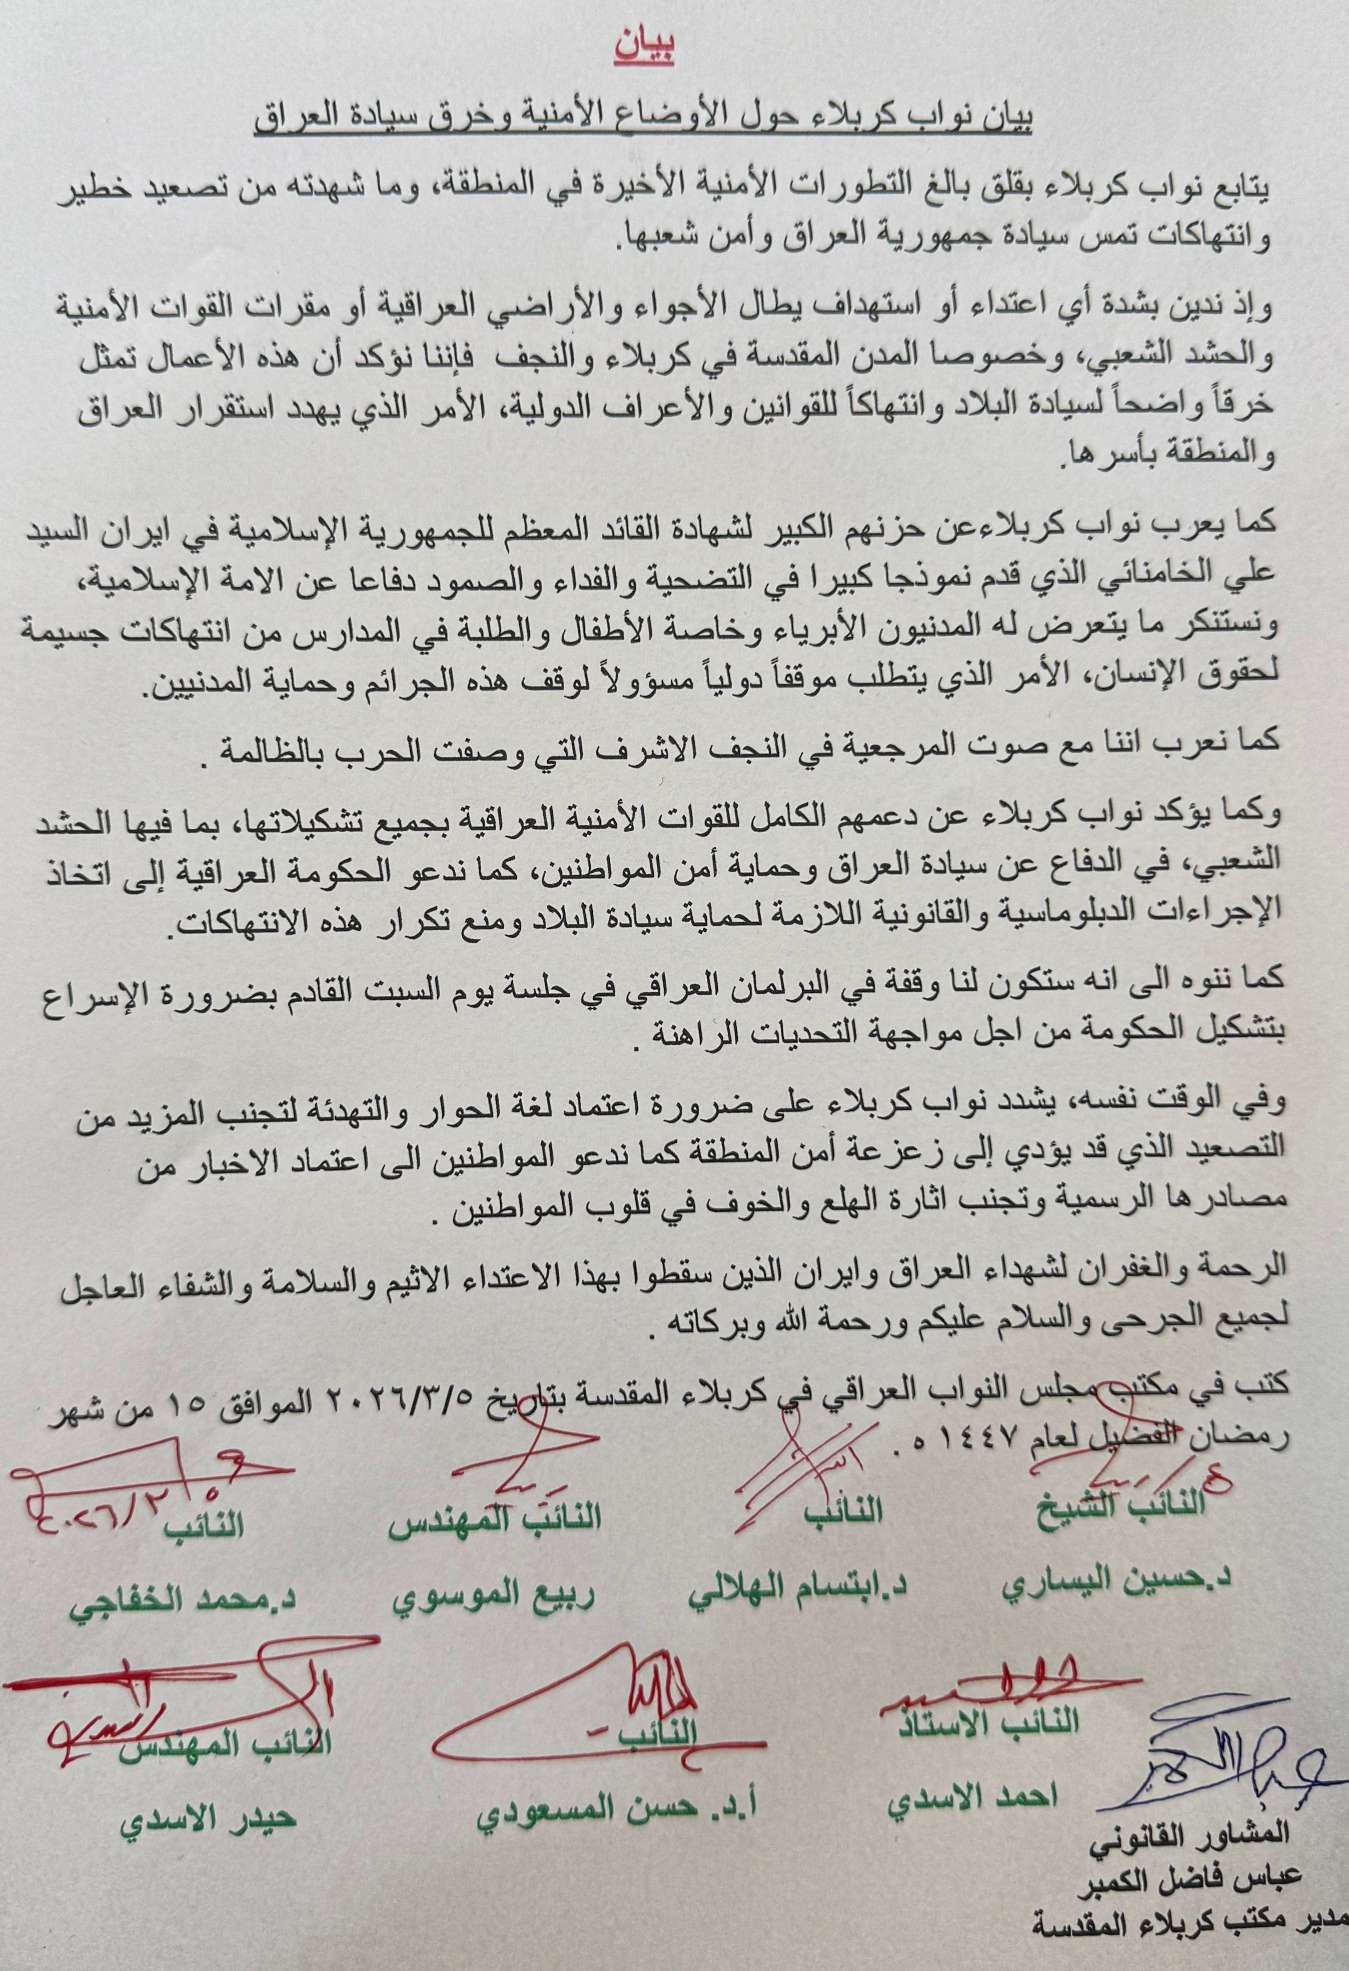 بيان
بيان نواب كربلاء حول الأوضاع الأمنية وخرق سيادة العراق
يتابع نواب كربلاء بقلق بالغ التطورات الأمنية الأخيرة في المنطقة، وما شهدته من تصعيد خطير
وانتهاكات تمس سيادة جمهورية العراق وأمن شعبها.
وإذ ندين بشدة أي اعتداء أو استهداف يطال الأجواء والأراضي العراقية أو مقرات القوات الأمنية
والحشد الشعبي، وخصوصا المدن المقدسة في كربلاء والنجف فإننا نؤكد أن هذه الأعمال تمثل
خرقاً واضحاً لسيادة البلاد وانتهاكاً للقوانين والأعراف الدولية، الأمر الذي يهدد استقرار العراق
والمنطقة بأسرها.
كما يعرب نواب كربلاءعن حزنهم الكبير لشهادة القائد المعظم للجمهورية الإسلامية في ايران السيد
علي الخامنائي الذي قدم نموذجا كبيرا في التضحية والفداء والصمود دفاعا عن الامة الإسلامية،
ونستنكر ما يتعرض له المدنيون الأبرياء وخاصة الأطفال والطلبة في المدارس من انتهاكات جسيمة
لحقوق الإنسان، الأمر الذي يتطلب موقفاً دولياً مسؤولاً لوقف هذه الجرائم وحماية المدنيين.
كما نعرب اننا مع صوت المرجعية في النجف الاشرف التي وصفت الحرب بالظالمة .
وكما يؤكد نواب كربلاء عن دعمهم الكامل للقوات الأمنية العراقية بجميع تشكيلاتها، بما فيها الحشد
الشعبي، في الدفاع عن سيادة العراق وحماية أمن المواطنين، كما ندعو الحكومة العراقية إلى اتخاذ
الإجراءات الدبلوماسية والقانونية اللازمة لحماية سيادة البلاد ومنع تكرار هذه الانتهاكات.
كما ننوه الى انه ستكون لنا وقفة في البرلمان العراقي في جلسة يوم السبت القادم بضرورة الإسراع
بتشكيل الحكومة من اجل مواجهة التحديات الراهنة .
وفي الوقت نفسه، يشدد نواب كربلاء على ضرورة اعتماد لغة الحوار والتهدئة لتجنب المزيد من
التصعيد الذي قد يؤدي إلى زعزعة أمن المنطقة كما ندعو المواطنين الى اعتماد الاخبار من
مصادرها الرسمية وتجنب اثارة الهلع والخوف في قلوب المواطنين .
الرحمة والغفران لشهداء العراق وايران الذين سقطوا بهذا الاعتداء الاثيم والسلامة والشفاء العاجل
لجميع الجرحى والسلام عليكم ورحمة الله وبركاته .
كتب في مكتب مجلس النواب العراقي في كربلاء المقدسة بتاريخ ٢٠٢٦/٣/٥ الموافق ١٥ من شهر
رمضان الفضيل لعام ١٤٤٧ ه .
النائب الشيخ النائب النائب المهندس النائب
د.حسين اليساري د.ابتسام الهلالي ربيع الموسوي د.محمد الخفاجي
النائب الاستاذ النائب النائب المهندس
احمد الاسدي أ.د. حسن المسعودي حيدر الاسدي
المشاور القانوني
عباس فاضل الكمبر
مدير مكتب كربلاء المقدسة